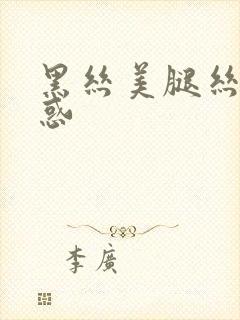 黑丝美腿丝
惑
李廣